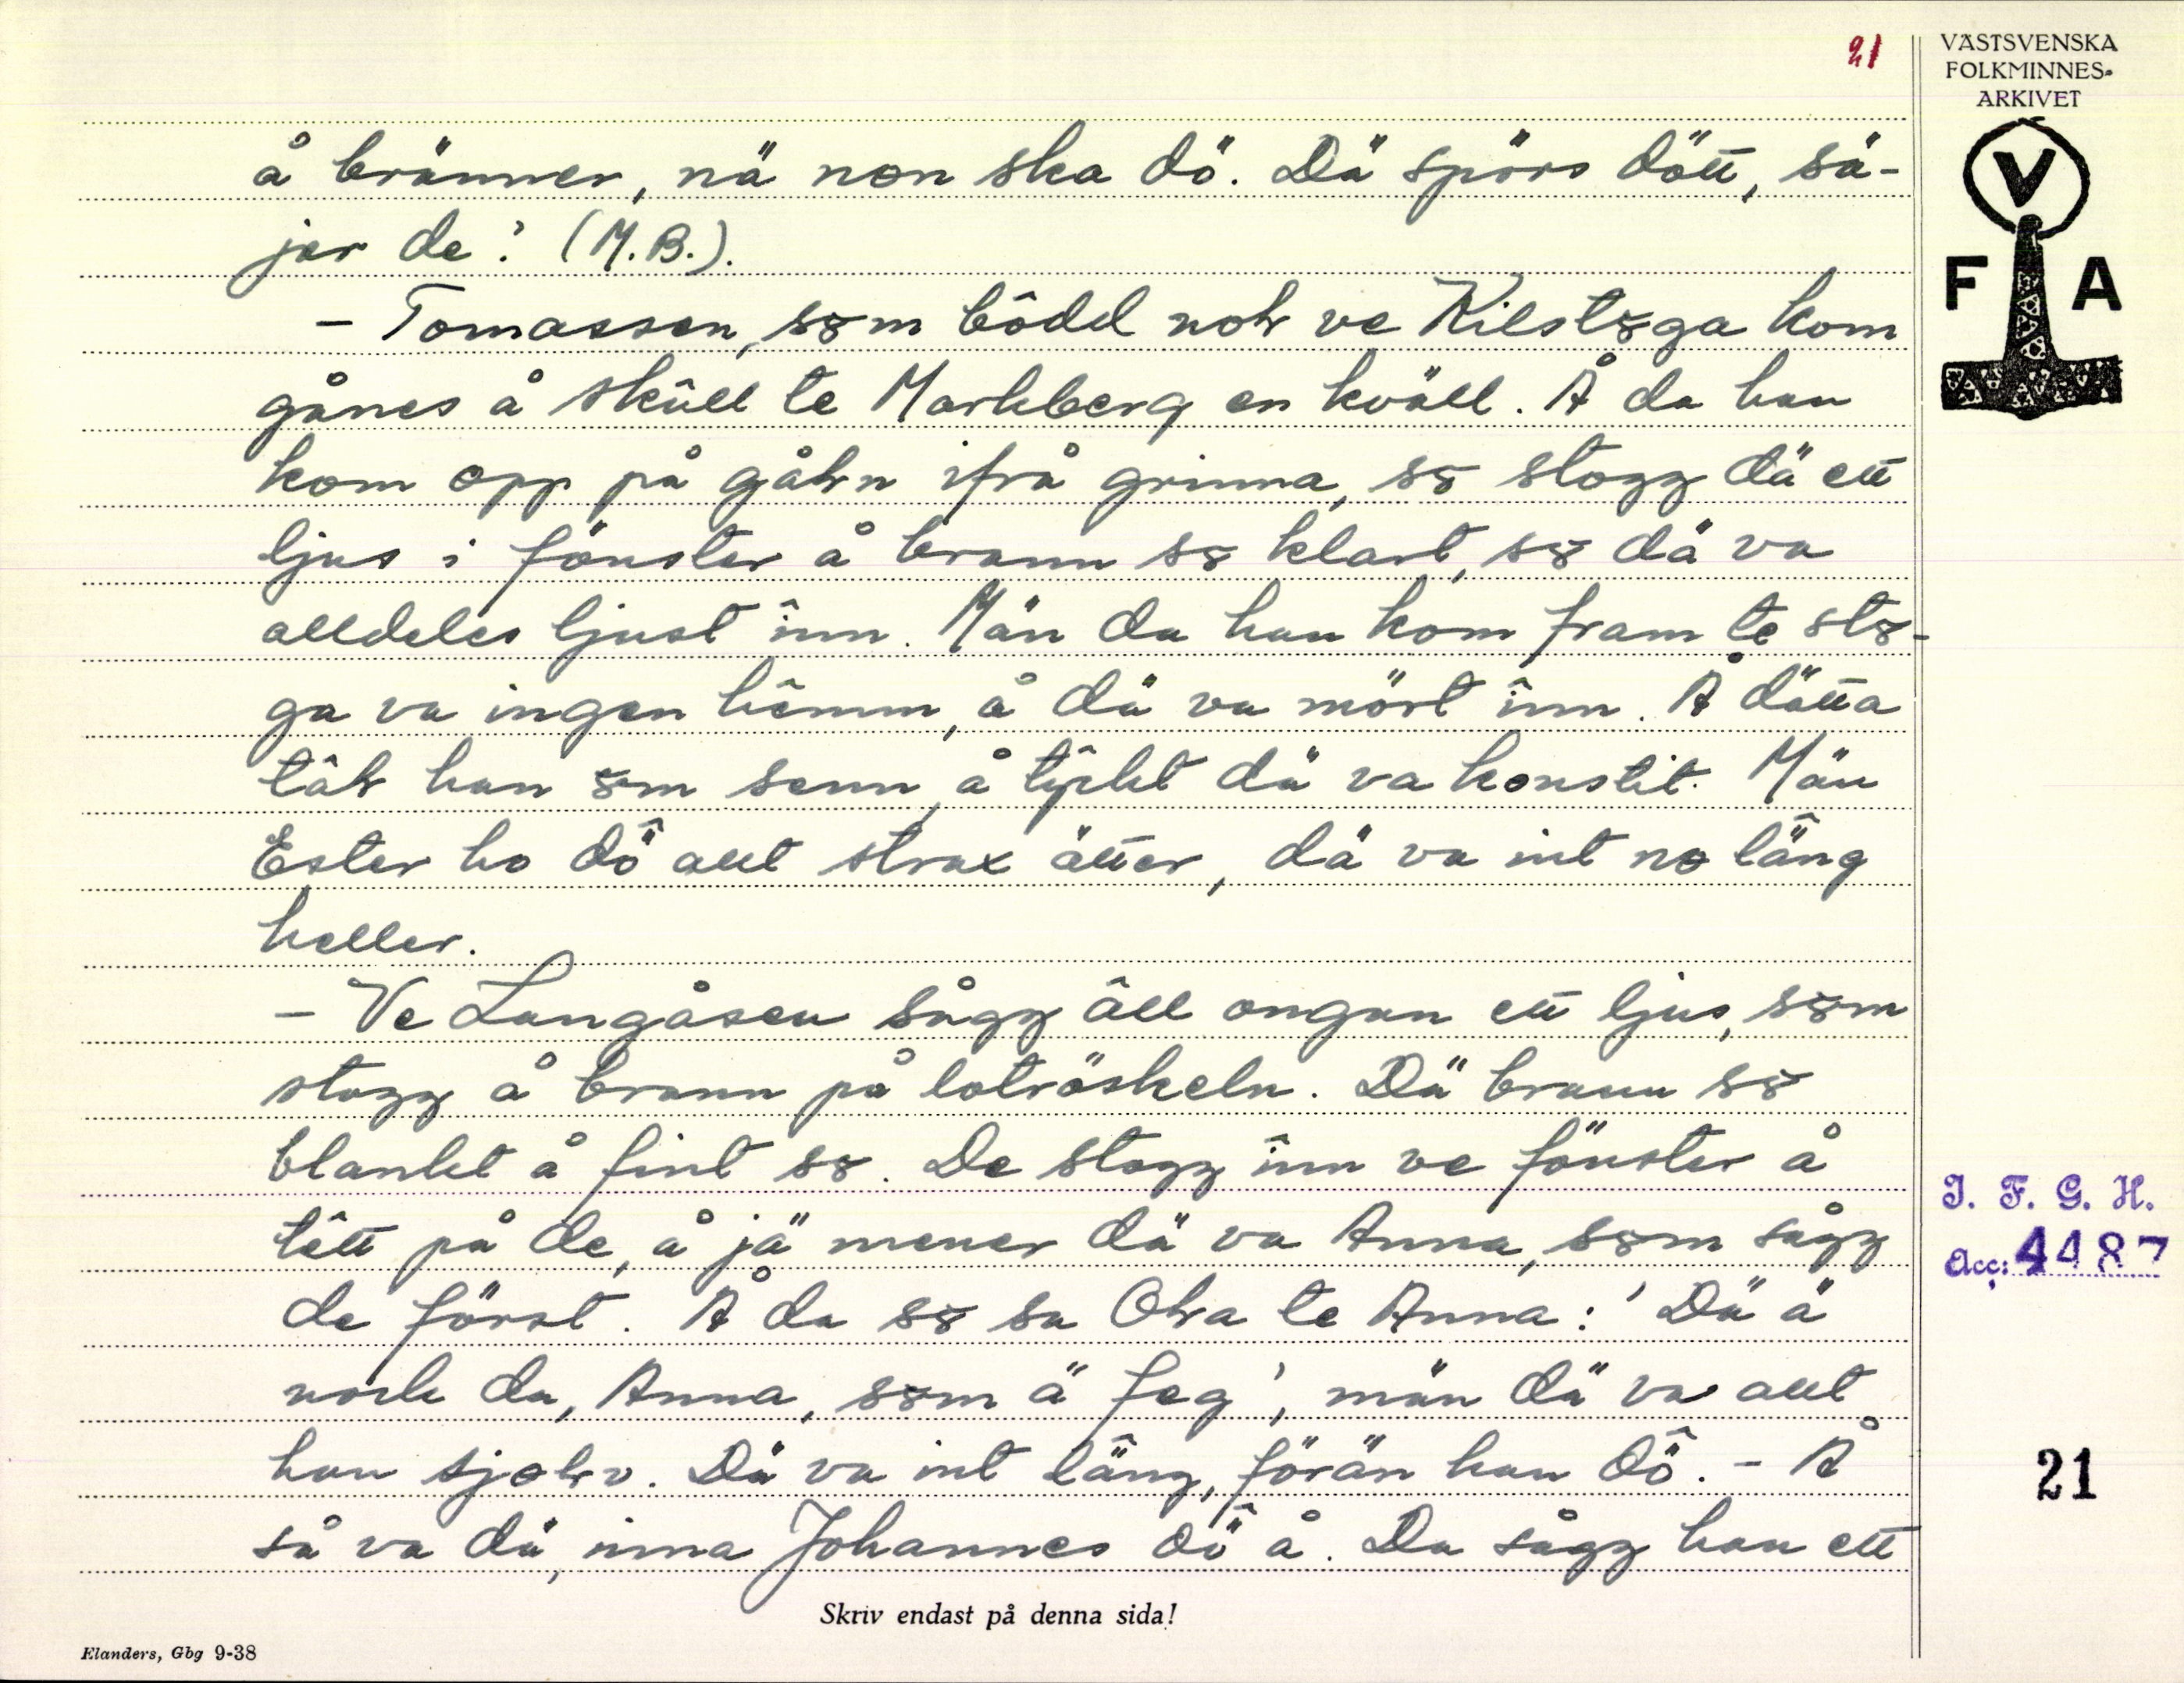 21
VÄSTSVENSKA
FOLKMINNES-
ARKIVET
V
F A
å bränner, nä non ska dö. Dä spörs dött, sä-
jer de! (M.B.).
– Tomassen, söm bôdd nol ve Kilstöga kom
gånes å skûll te Markberg en kväll. Å da han
kom opp på gåln ifrå grinna, sö stogg dä ett
ljus i fönster å brann sö klart, sö dä va
alldeles ljust înn. Män da han kom fram te stö-
ga va ingen hêmm, å dä va mört înn. Å dätta
tâl han öm senn, å tŷkt dä va konstit. Män
Ester ho dö̂ allt strax ätter, dä va int no lä̂ng
heller.
– Ve Langåsen sågg âll ongan ett ljus, söm
stogg å brann på loträskeln. Dä brann sö
blankt å fint sö. De stogg înn ve fönster å
têtt på de, å jä mener dä va Anna, söm sågg
de först. Å da sö sa Ola te Anna: 'Dä ä
nock du, Anna, söm ä feg', män dä va allt
han sjølv. Dä va int lä̂ng, förän han dö̂. – Å
så va dä, inna Johannes dö̂ å. Da sågg han ett
I. F. G. H.
Acc: 4487
21
Skriv endast på denna sida!
Elanders, Gbg 9-38